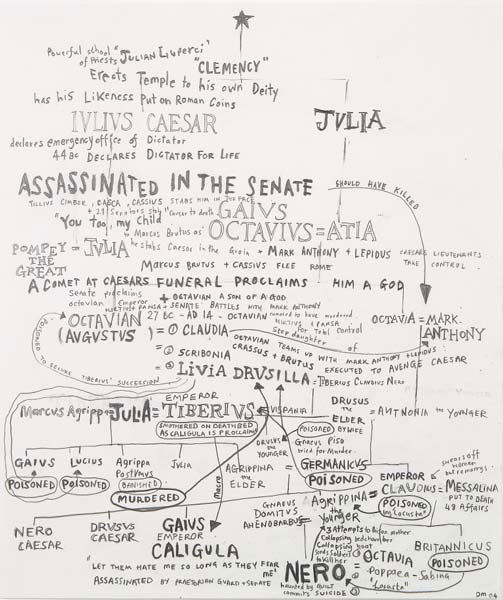 Powerful school "JULIAN Luperci"
of Priests
"CLEMENCY"
Erects Temple to his own Deity
has his Likeness put on Roman Coins
IVLIVS CAESAR
JULIA
declares emergency office of Dictator
44 BC DECLARES DICTATOR FOR LIFE
ASSASSINATED IN THE SENATE
SHOULD HAVE KILLED
TILLIUS CIMBER, CASCA, CASSIUS STABS HIM IN
+ 21 Senators stab Caesar to death
GAIUS
"You too, my Child
to Marcus Brutus as
OCTAVIUS = ATIA
he stabs Caesar in the Groin + MARK ANTHONY + LEPIDUS CAESARS LIEUTENANTS
TAKE CONTROL
POMPEY = JULIA
THE
GREAT
MARCUS BRUTUS + CASSIUS FLEE ROME
A COMET AT CAESARS FUNERAL PROCLAIMS HIM A GOD
Senate proclaims
octavian Emperor + OCTAVIAN A SON OF A GOD
HURTIUS + PANSA + SENATE BATTLES WITH MARK ANTHONY
OCTAVIAN 27 BC - AD 14 - OCTAVIAN rumored to have murdered
HURTIUS + PANSA
for Total Control
(AUGUSTUS)
OCTAVIA = MARK
ANTHONY
= ① CLAUDIA
Step daughter of
OCTAVIAN TEAMS UP WITH MARK ANTHONY + LEPIDUS
CRASSUS + BRUTUS EXECUTED TO AVENGE CAESAR
= ② SCRIBONIA
= ③ LIVIA DRUSILLA = TIBERIUS CLAUDIUS NERO
POISONED TO SECURE TIBERIUS' SUCCESSION
EMPEROR
Marcus Agrippa = JULIA = TIBERIUS = VISPANIA
DRUSUS
the
ELDER
= ANTNONIA the YOUNGER
SMOTHERED ON DEATHBED
AS CALIGULA IS PROCLAIMED
POISONED
BY WIFE
DRUSUS
the
YOUNGER
GNAEUS PISO
tried for Murder
GAIUS
POISONED
LUCIUS
POISONED
Agrippa
Postumus
BANISHED
MURDERED
JULIA
Macro
AGRIPPINA
the
ELDER
= GERMANICUS
POISONED
EMPEROR
CLAUDIUS = MESSALINA
POISONED
by "Locusta"
PUT TO DEATH
48 Affairs
swears off
women
but remarrys
GNAEUS
DOMITUS
AHENOBARBUS
= AGRIPPINA
the
Younger
NERO
CAESAR
DRUSUS
CAESAR
GAIUS
EMPEROR
CALIGULA
3 Attempts to Poison mother
Collapsing bedchamber
Collapsing boat
sends soldiers
to kill her
BRITANNICUS
POISONED
"Locusta"
"LET THEM HATE ME SO LONG AS THEY FEAR
ME"
ASSASSINATED BY PRAETORIAN GUARD + SENATE
NERO
= ① OCTAVIA
= ② POPPAEA - Sabina
haunted by Guilt
commits SUICIDE
DM 04